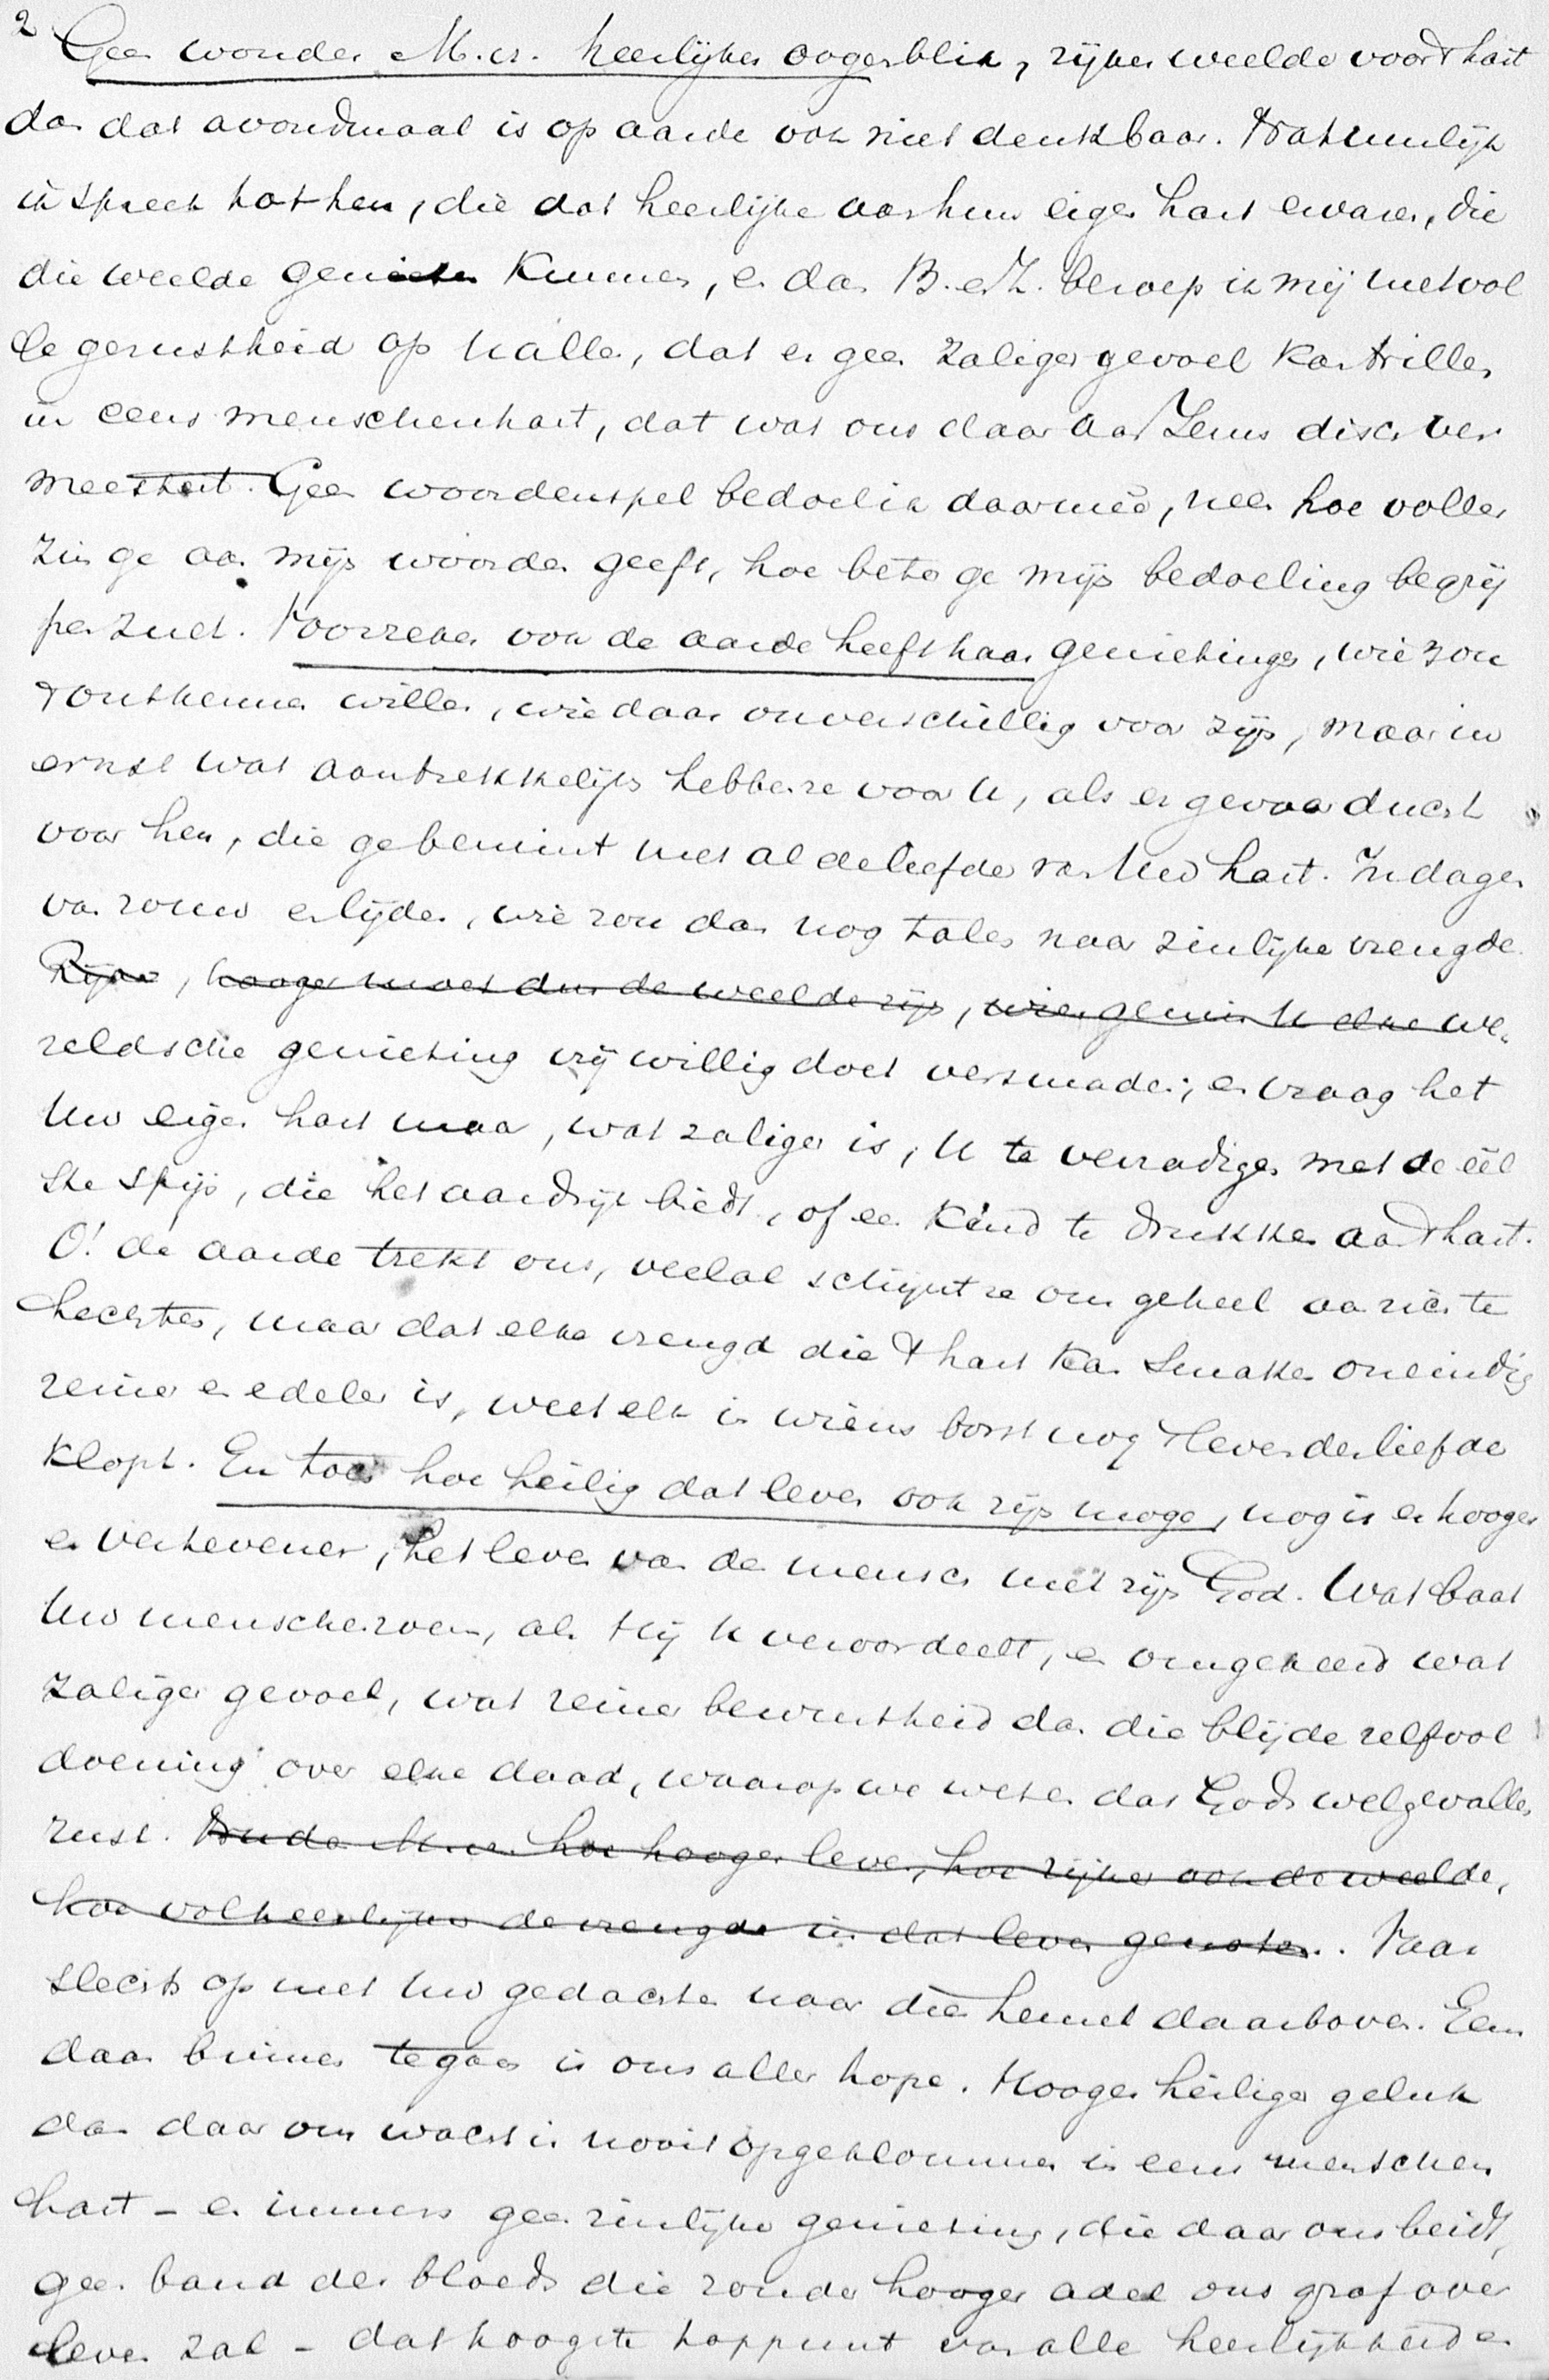 2 Geen wonder M.Gr. heerlijker oogenblik, rijker weelde voor 't hart
dan dat avondmaal is op aarde ook niet denkbaar. Natuurlijk
ik spreek tot hen, die dat heerlijke aan hun eigen hart ervaren, die
die weelde genieten kunnen, en dan B. en Z. beroep ik mij met vol
le gerustheid op U allen, dat er geen zaliger gevoel kan trillen
in eens menschenhart, dat wat ons daar aan Jezus disch ver
meestert. Geen woordenspel bedoel ik daarmeê, neen hoe voller
zin ge aan mijn woorden geeft, hoe beter ge mijn bedoeling begrij
pen zult. Voorzeker ook de aarde heeft haar genietingen, wie zou
't ontkennen willen, wie daar onverschillig voor zijn, maar in
ernst wat aantrekkelijks hebben ze voor U, als er gevaar ducht
voor hen, die ge bemint met al de liefde van Uw hart. In dagen
van rouw en lijden, wie zou dan nog talen naar zinlijke vreugde.
Rijker, hooger moet dus de weelde zijn, wier gemis U elke we
reldsche genieting vrijwillig doet versmaden; en vraag het
Uw eigen hart maar, wat zaliger is, U te verzadigen met de eêl
ste spijs, die het aardrijk biedt, of een kind te drukken aan 't hart.
O! de aarde trekt ons, veelal schijnt ze ons geheel aan zich te
hechten, maar dat elke vreugd die 't hart kan smaken oneindig
reiner en edeler is, weet elk in wiens borst nog 't leven der liefde
klopt. En toch hoe heilig dat leven ook zijn moge, nog is er hooger
en verhevener, het leven van den mensch met zijn God. Wat baat
Uw menschenroem, als Hij U veroordeelt, en omgekeerd wat
zaliger gevoel, wat reiner bewustheid dan die blijde zelfvol
doening over elke daad, waarop we weten dat Gods welgevallen
rust. hoe hooger leven, hoe rijker ook de weelde,
hoe volheerlijker de vreugde in dat leven genoten. Vaar
slechts op met Uw gedachten naar dien hemel daarboven. Eens
daar binnen te gaan is ons aller hope. Hooger heiliger geluk
dan daar ons wacht is nooit opgeklommen in eens menschen
hart - en immers geen zinlijke genieting, die daar ons beidt,
geen band des bloeds die zonder hooger adel ons graf over
leven zal - dat hoogste toppunt van alle heerlijkheid en